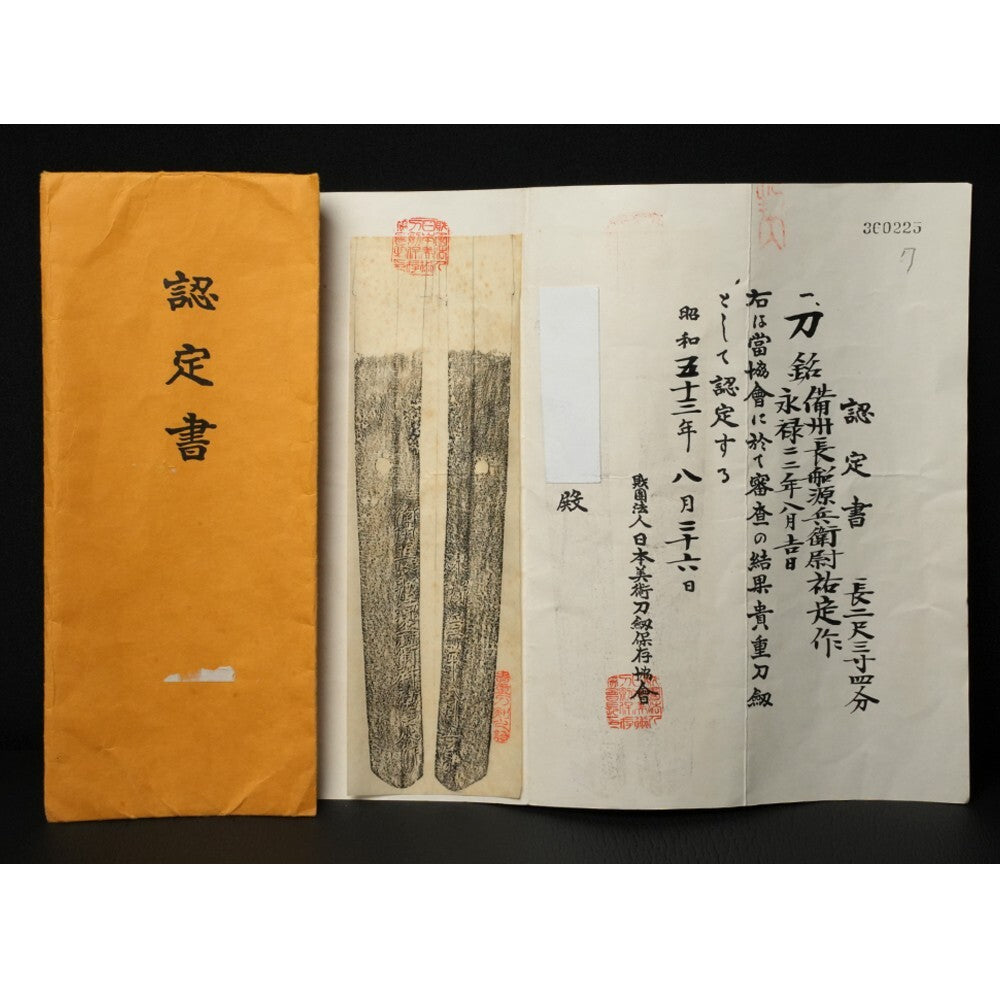 認定書
360225
7
認定書
一、刀 銘 備州長船源兵衛尉祐定作 長二尺三寸四分
永禄二二年八月吉日
右は當協會に於て審査の結果貴重刀劔
として認定する
昭和五十三年八月二十六日
財團法人日本美術刀劔保存協會
殿